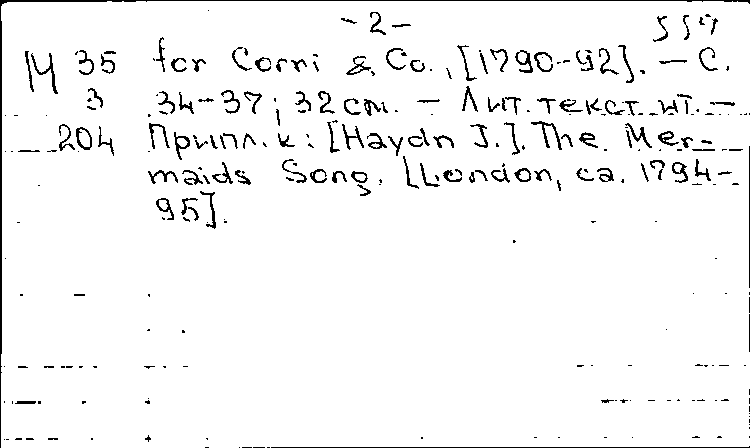 -2-
557
М 35 for Corri & Co., [1790-92]. — С.
3 34-37; 32 см. — Лит. текст ит. —
204 Припл. к: [Haydn J.]. The Mer-
maids Song. [London, ca. 1794-
95].